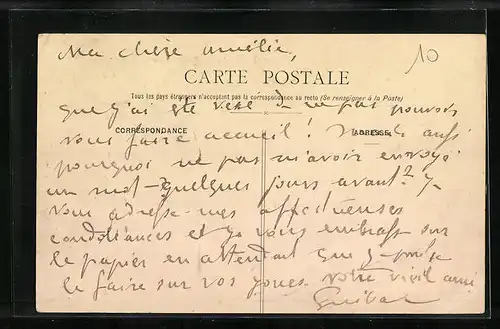 Ma chère Amélie,
10
CARTE POSTALE
Tous les pays étrangers n'acceptant pas la correspondance au recto (Se renseigner à la Poste)
que j'ai été vexé de ne pas pouvoir
CORRESPONDANCE
ADRESSE
vous faire accueil ! Mais aussi
pourquoi ne pas m'avoir envoyé
un mot quelques jours avant ? Je
vous adresse mes affectueuses
condoléances et je vous embrasse sur
le papier en attendant que je puisse
le faire sur vos joues. Votre vieil ami